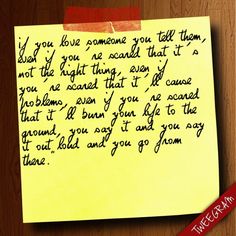 if you love someone you tell them,
even if you're scared that it's
not the right thing, even if
you're scared that it'll cause
problems, even if you're scared
that it'll burn your life to the
ground, you say it and you say
it out loud and you go from
there."
TWEEGRAM